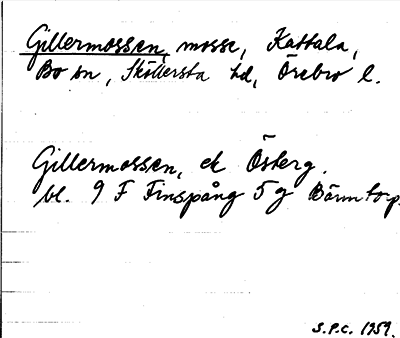 Gillermossen, mosse, Kattala,
Bo sn, Sköllersta hd, Örebro l.
Gillermossen, ek Österg.
bl. 9 F Finspång 5 g Bärmtorp.
S.P.C. 1959.